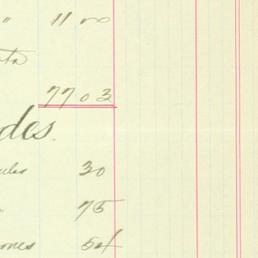 " 11 00
7703
des.
ules 30
" 75
ones 54